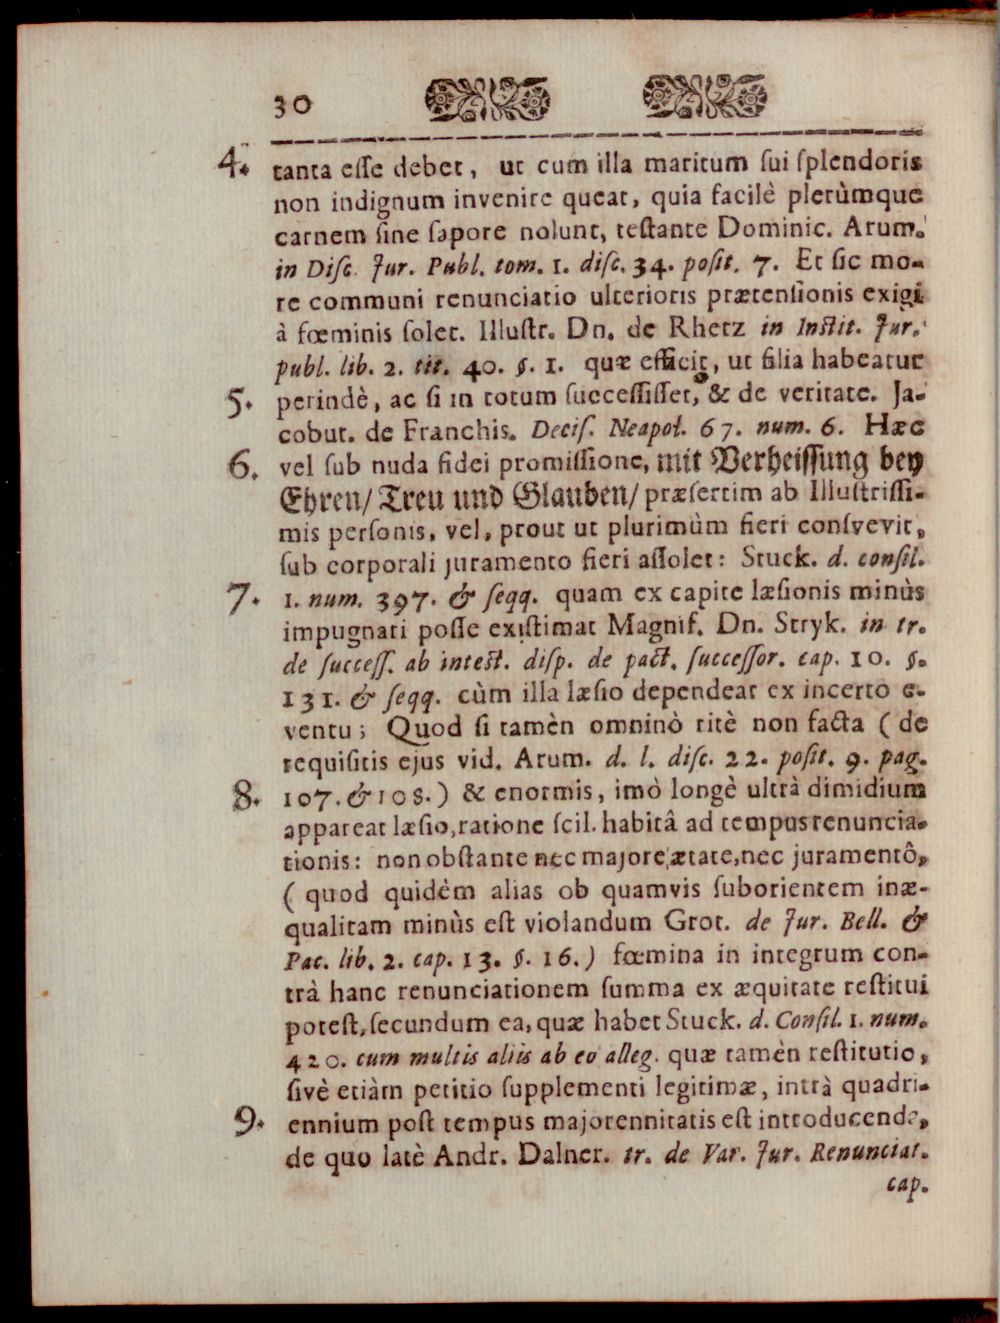 30
4. tanta esse debet, ut cum illa maritum sui splendoris
non indignum invenire queat, quia facilè plerùmque
carnem sine sapore nolunt, testante Dominic. Arum.
in Disc. Jur. Publ. tom. 1. disc. 34. posit. 7. Et sic mo-
re communi renunciatio ulterioris prætensionis exigi
à fœminis solet. Illustr. Dn. de Rhetz in Instit. Jur.
publ. lib. 2. tit. 40. §. 1. quæ efficit, ut filia habeatur
5. perindè, ac si in totum successisset, & de veritate. Ja-
cobut. de Franchis. Decis. Neapol. 67. num. 6. Hæc
6. vel sub nuda fidei promissione, mit Verheissung bey
Ehren/ Treu und Glauben/ præsertim ab Illustrissi-
mis personis, vel, prout ut plurimùm fieri consvevit,
sub corporali juramento fieri assolet: Stuck. d. consil.
7. 1. num. 397. & seqq. quam ex capite læsionis minùs
impugnari posse existimat Magnif. Dn. Stryk. in tr.
de success. ab intest. disp. de pact. successor. cap. 10. §.
131. & seqq. cùm illa læsio dependeat ex incerto e-
ventu; Quod si tamèn omninò ritè non facta (de
requisitis ejus vid. Arum. d. l. disc. 22. posit. 9. pag.
8. 107. & 108.) & enormis, imò longè ultrà dimidium
appareat læsio, ratione scil. habitâ ad tempus renuncia-
tionis: non obstante nec majore ætate, nec juramentô,
( quod quidèm alias ob quamvis suborientem inæ-
qualitam minùs est violandum Grot. de Jur. Bell. &
Pac. lib. 2. cap. 13. §. 16.) fœmina in integrum con-
trà hanc renunciationem summa ex æquitate restitui
potest, secundum ea, quæ habet Stuck. d. Consil. 1. num.
420. cum multis aliis ab eo alleg. quæ tamèn restitutio,
sivè etiàm petitio supplementi legitimæ, intrà quadri-
9. ennium post tempus majorennitatis est introducenda,
de quo latè Andr. Dalner. tr. de Var. Jur. Renunciat.
cap.